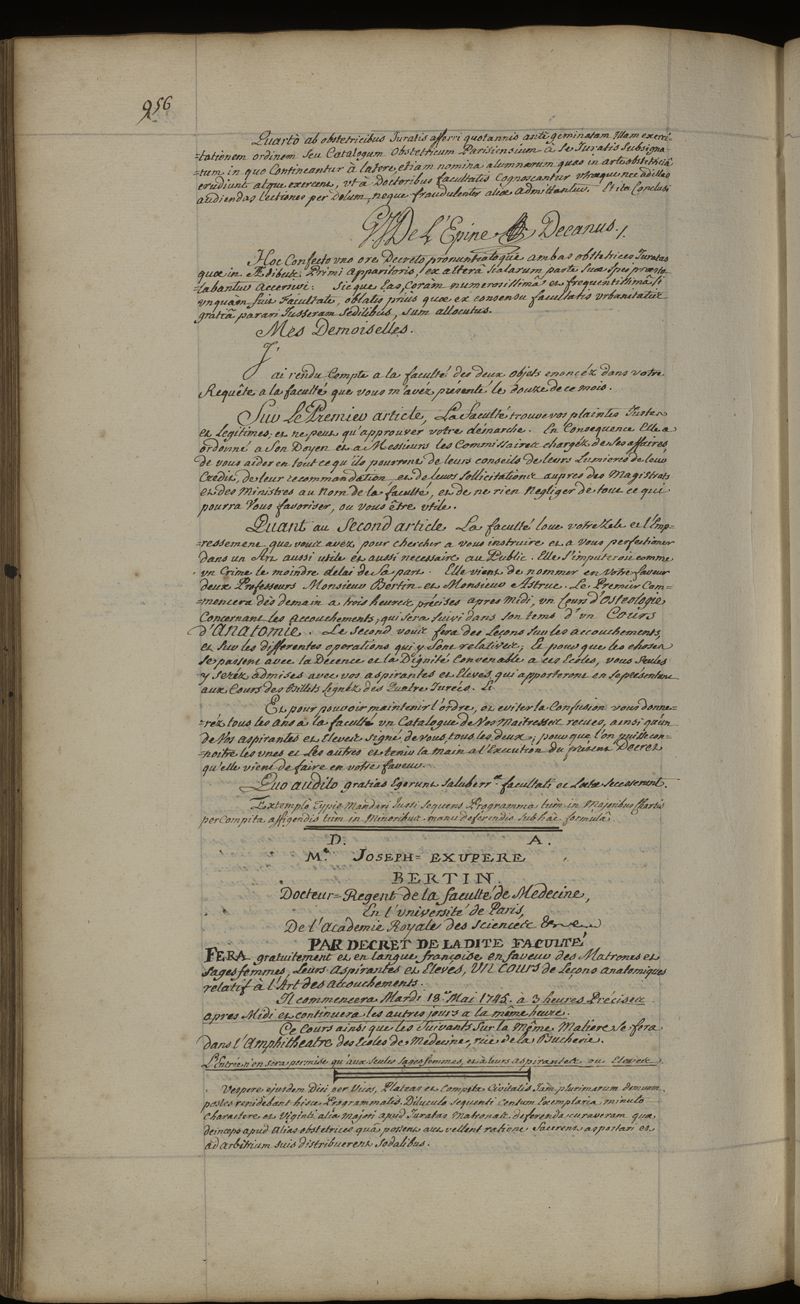 956
Quartò ab obstetricibus Juratis afferri quotannis antè geminatam Illam exerci-
=tationem ordinem seu Catalogum Obstetricum Parisiensium à se Juratis Subsigna-
=tum in quo Contineantur à latere, etiam nomina alumnarum quas in arte obstetriciâ
erudiunt atque exercent, vt à Doctoribus facultatis Cognoscantur vtræque nec ad illas
audiendas lectiones per dolum, neque fraudulenter aliæ admittantur. Et ita Conclusi
GJ De L'Epine Decanus./.
Hoc Confecto vno ore Decreto pronuntiatoque ambas obstetrices Juratas
quæ in Ædibus Primi apparitoris, ex altera scalarum parte suæ spes præsto-
labantur accersivi: sicque Eas, Coram numerosissimâ et frequentissimâ si
vnquam fuit Facultate, oblatis priùs quæ ex consensu facultatis vrbanitatis
gratiâ parari Jusseram Sedilibus, sum allocutus.
Mes Demoiselles.
J'
ai rendu Compte a la faculté des deux objets enoncéz dans votre
Requête a la faculté que vous m'avez présenté le douze de ce mois.
Sur Le Premier article, La faculté trouve vos plaintes Justes
et Legitimes, et ne peut qu'approuver votre démarche. En Consequence Elle a
ordonné a Son Doyen et a Messieurs les Commissaires chargéz de ses affaires,
de vous aider en tout ce qu'ils pourront de leurs conseils de leurs Lumieres de leur
Credit, de leur recommandation, et de leurs Sollicitations aupres des Magistrats
et des Ministres au Nom de la faculté, et de ne rien Negliger de tout ce qui
pourra Vous favoriser, ou vous être vtile.
Quant au Second article La faculté loue votre Zele et l'Emp=
=ressement que vous avez pour chercher a vous instruire et a vous perfectioner
dans un Art aussi utile et aussi necessaire au Public. Elle S'imputeroit comme
vn Crime le moindre delai de Sa part. Elle vient de nommer en Votre faveur
deux Professeurs Monsieur Bertin et Monsieur Astruc. Le Premier Com=
=mencera dès demain a trois heures précises apres Midi, vn Cours d'Osteologie
Concernant les accouchements, qui Sera Suivi dans Son tems d'vn Cours
d'Anatomie. Le Second vous fera des Leçons Sur les accouchements,
et Sur les differentes operations qui y Sont relatives, et pour que les choses
Se passent avec la Decence et la Dignité Convenable a ces Ecoles, vous Seules
y Serez admises avec vos aspirantes et Eleves, qui apporteront en Se présentant
aux Cours des Billets Signéz des Quatre Jurées.
Et pour pouvoir maintenir l'ordre, et eviter la Confusion vous donne=
=réz tous les ans a la faculté un Catalogue de Nos Maitresses recues, ainsi qu'un
de Vos aspirantes et Eleves Signé de vous tous les deux, pour que l'on puisse con=
=noitre les vnes et Les autres et tenir la main a l'Execution du présent Decret
qu'elle vient de faire en votre faveur.
Quo audito gratias Egerunt saluberr.æ facultati et Lætæ Secesserunt.
Extemplò Typis Mandari Jussi Sequens Programma tum in Majoribus Chartis
per Compita affigendis tum in Minoribus manu deferendis sub hac formulâ.
D. A.
M.e JOSEPH=EXUPERE
BERTIN.
Docteur=Regent de la faculté de Medecine,
En l'Vniversité de Paris,
De l'Academie Royale des Sciences &c
PAR DECRET DE LADITE FACULTÉ
FERA gratuitement et en langue françoise en faveur des Matrones et
Sagesfemmes, leurs aspirantes et Eleves, Un Cours de Leçons anatomiques
relatif à l'Art des accouchements.
Il commencera Mardi 18.e Mai 1745. a 3 heures Précises
apres Midi et continuera les autres jours a la même heure.
Ce Cours ainsi que les Suivants Sur la Même Matiere Se fera
dans l'Amphitheatre des Ecoles de Medecine, rüe de la Bucherie.
L'Entrée n'en sera permise qu'aux Seules Sages femmes, et à leurs aspirantes ou Eleves.
Vespere ejusdem Diei per Vicos, Plateas et Compita Civitatis Jam plurimarum domuum
postes renidebant hisce Programmatis. Diluculo Sequenti Centum Exemplaria minuto
Charactere, et Viginti alia Majori apud Juratas Matronas deferenda curaveram quæ
deinceps apud Alias obstetrices quâ possent aut vellent ratione facerent asportari et
ad arbitrium suis distribuerent Sodalibus.